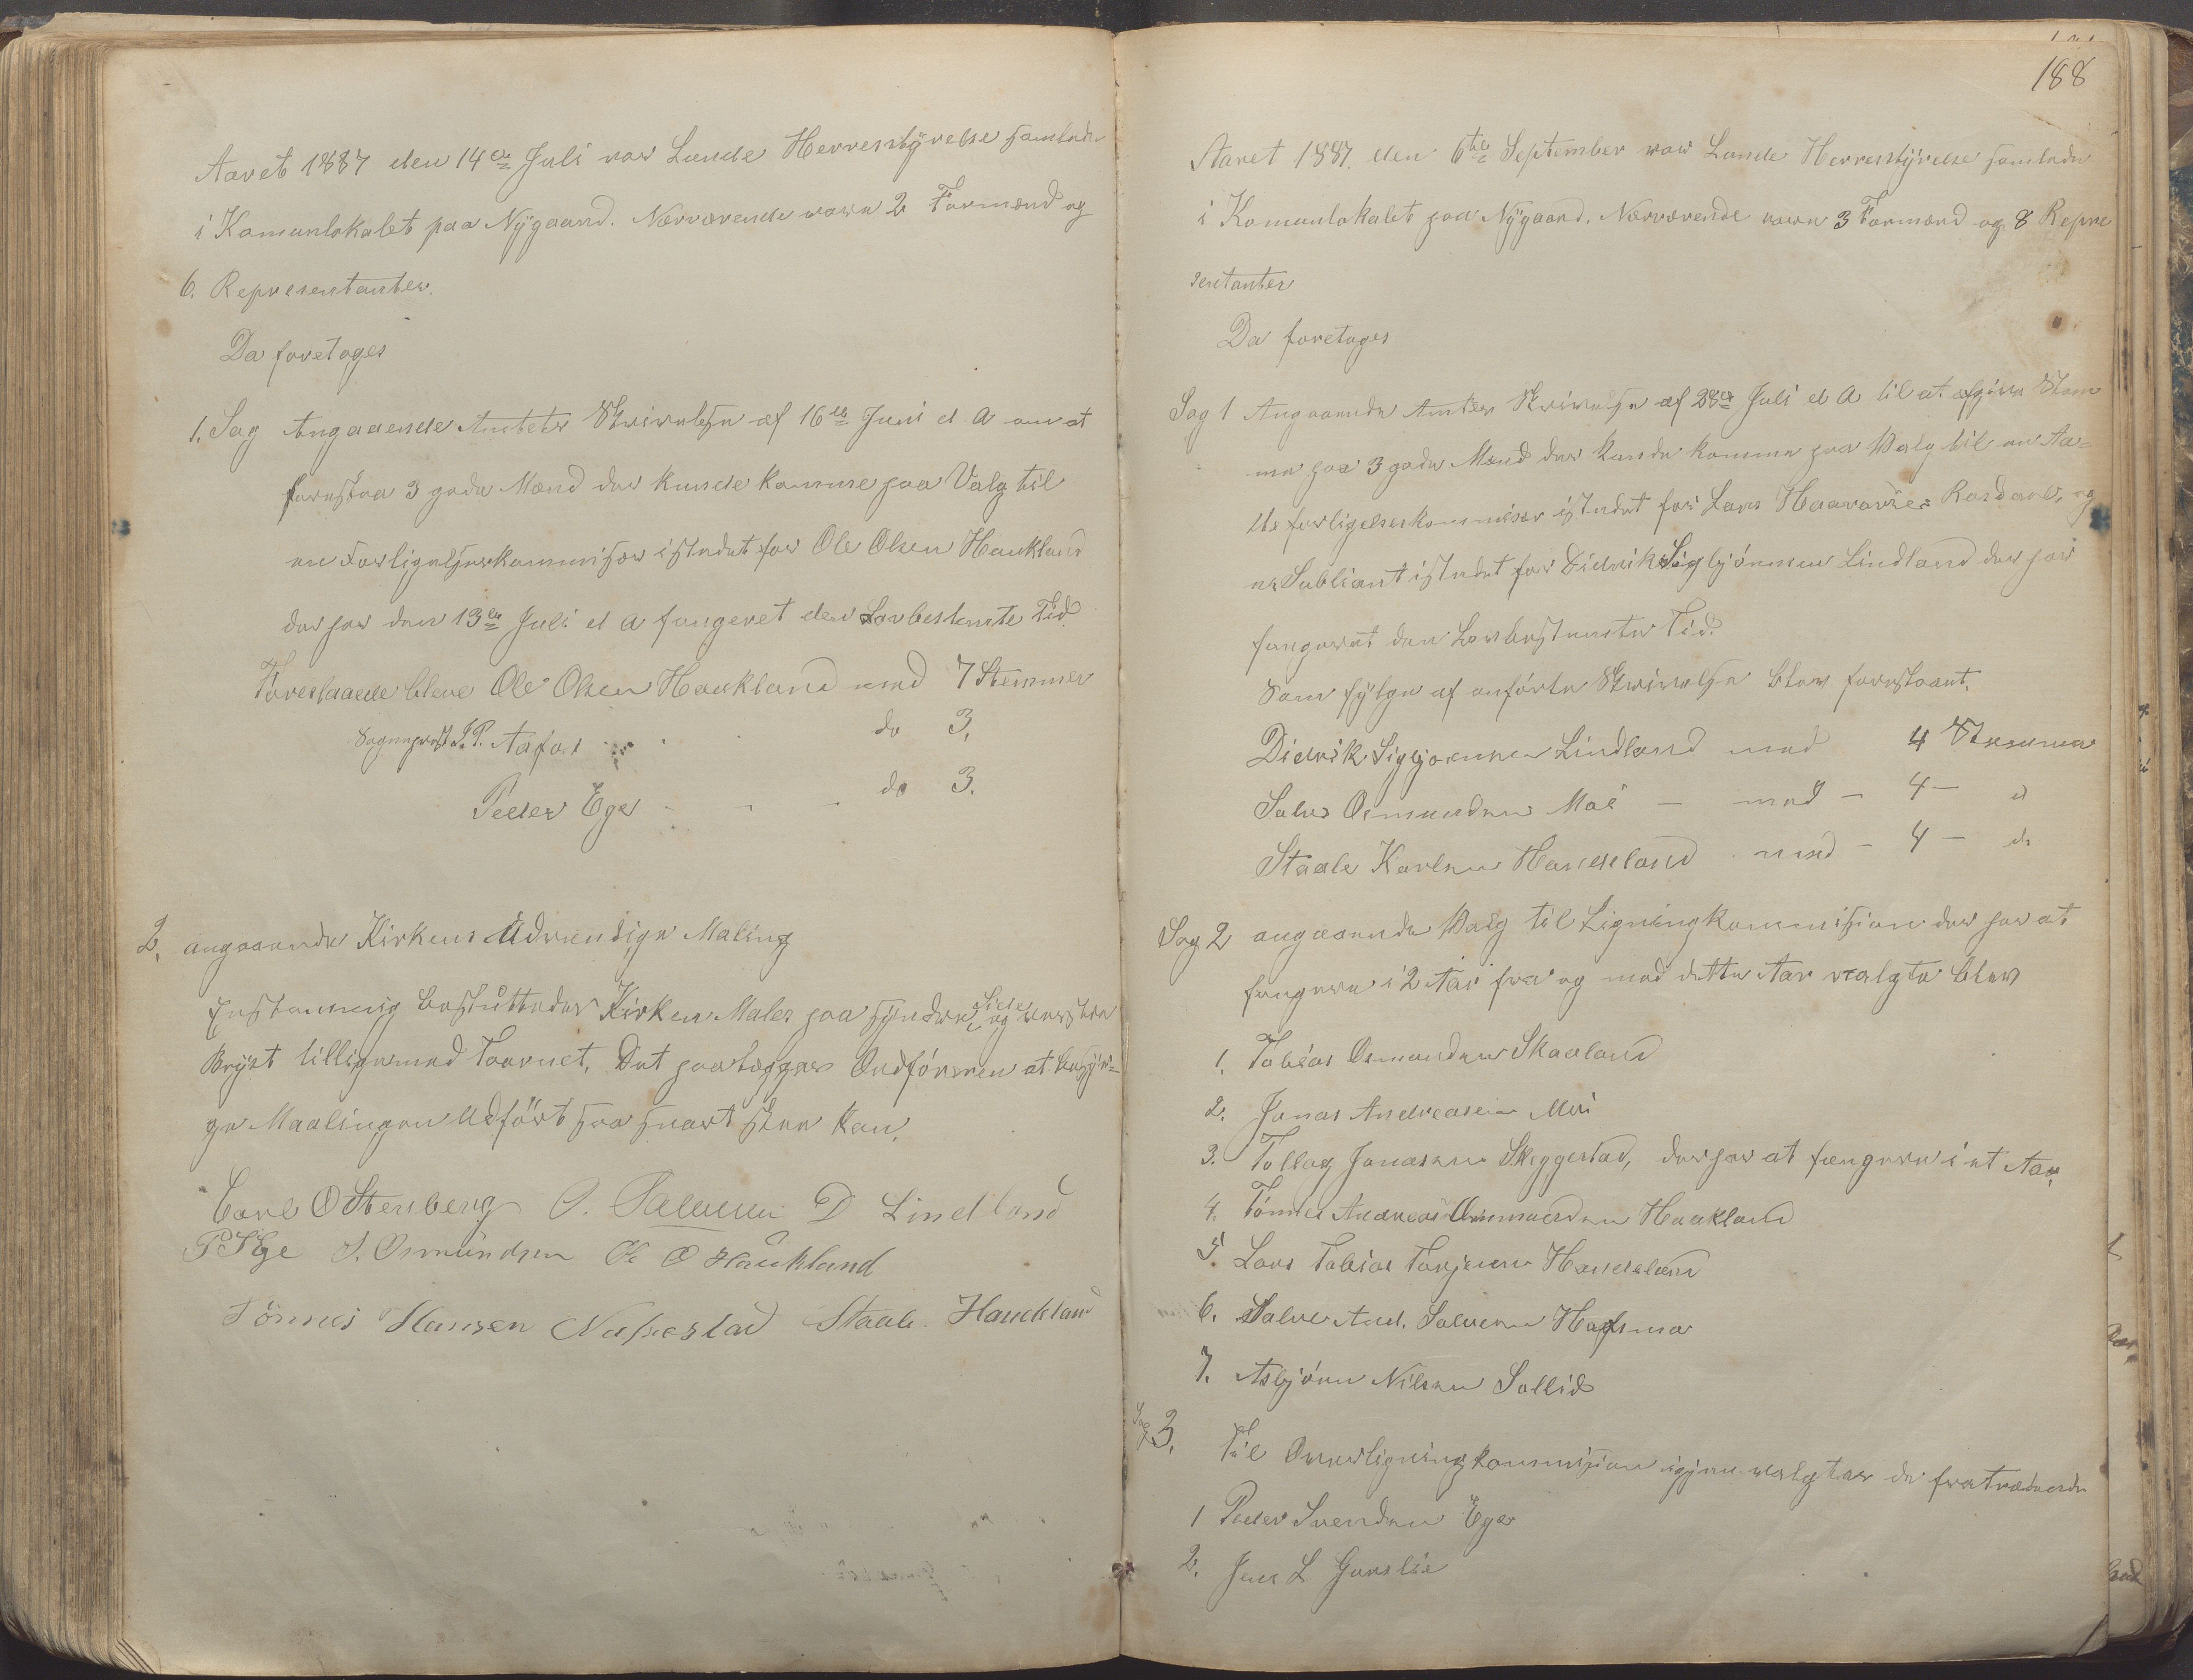 Aaret 1887 den 14de Juli var Lunde Herresstyrelse samlede
i Komunlokalet paa Nygaard. Nærværende vare 2 Formænd og
6. Representanter.
Da foretoges
1. Sag Angaaende Amtets Skrivelse af 16de Juni d A om at
foreslaa 3 gode Mænd der kunde komme paa Valg til
en Forligelseskommisær istedet for Ole Olsen Haukland
der har den 13de Juli d A fungeret den Lovbestemte Tid.
Foreslaaede bleve Ole Olsen Haukland med 7 Stemmer
Sogneprest J. P. Aafos do 3.
Peder Ege do 3.
2. angaaende Kirkens Udvendige Maling
Enstemmig besluttedes Kirken Males paa syndre Side og vestre
Bryst tilligemed Taarnet. Det paalægges Ordføreren at besør=
ge Maalingen Udført saa snart skee kan.
Carl O Stenberg D Lindland
P S Ege S. Osmundsen Ole O Haukland
Tönnes Hansen Staale Hauckland
188
Aaret 1887. den 6te September var Lunde Herresstyrelse samlede
i Komunlokalet paa Nygaard. Nærværende vare 3 Formænd og 8 Repre
sentanter
Da foretoges
Sag 1 Angaaende Amtes Skrivelse af 28de Juli d A til at afgive Stem
me paa 3 gode Mænd der kunde komme paa Valg til en Aa=
Ut forligelseskommisær istedet for Lars Haavarsen Rosdaul, og
en Subliant istedet for Didrik Sigbjörnsen Lindland der har
fungeret den Lovbestemte Tid.
Som fylge af anförte Skrivelse blev foreslaaet.
Didrik Sigbjoernsen Lindland med 4 Stemmer
Salve Osmundsen Moi — med — 4 — d
Staale Karlsen Haukland med — 4 — do
Sag 2 angaaende Valg til Ligningkommission der har at
fungere i 2 Aar fra og med dette Aar valgte blev
1. Tobias Osmundsen Skaaland
2. Jonas Andreasen Moi
3. Tollag Jonassen Skeggestad, der har at fungere i et Aar,
4. Tönnes Andreas Osmundsen Haukland
5. Lars Tobias Torjesen Haukland
6. Salve And. Salvesen Hafsmo
7. Asbjörn Nilsen Sollid
Sag 3. Til Overligningkommission igjen valgtes de fratrædende
1 Peder Svendsen Ege
2. Jens L Gurslie